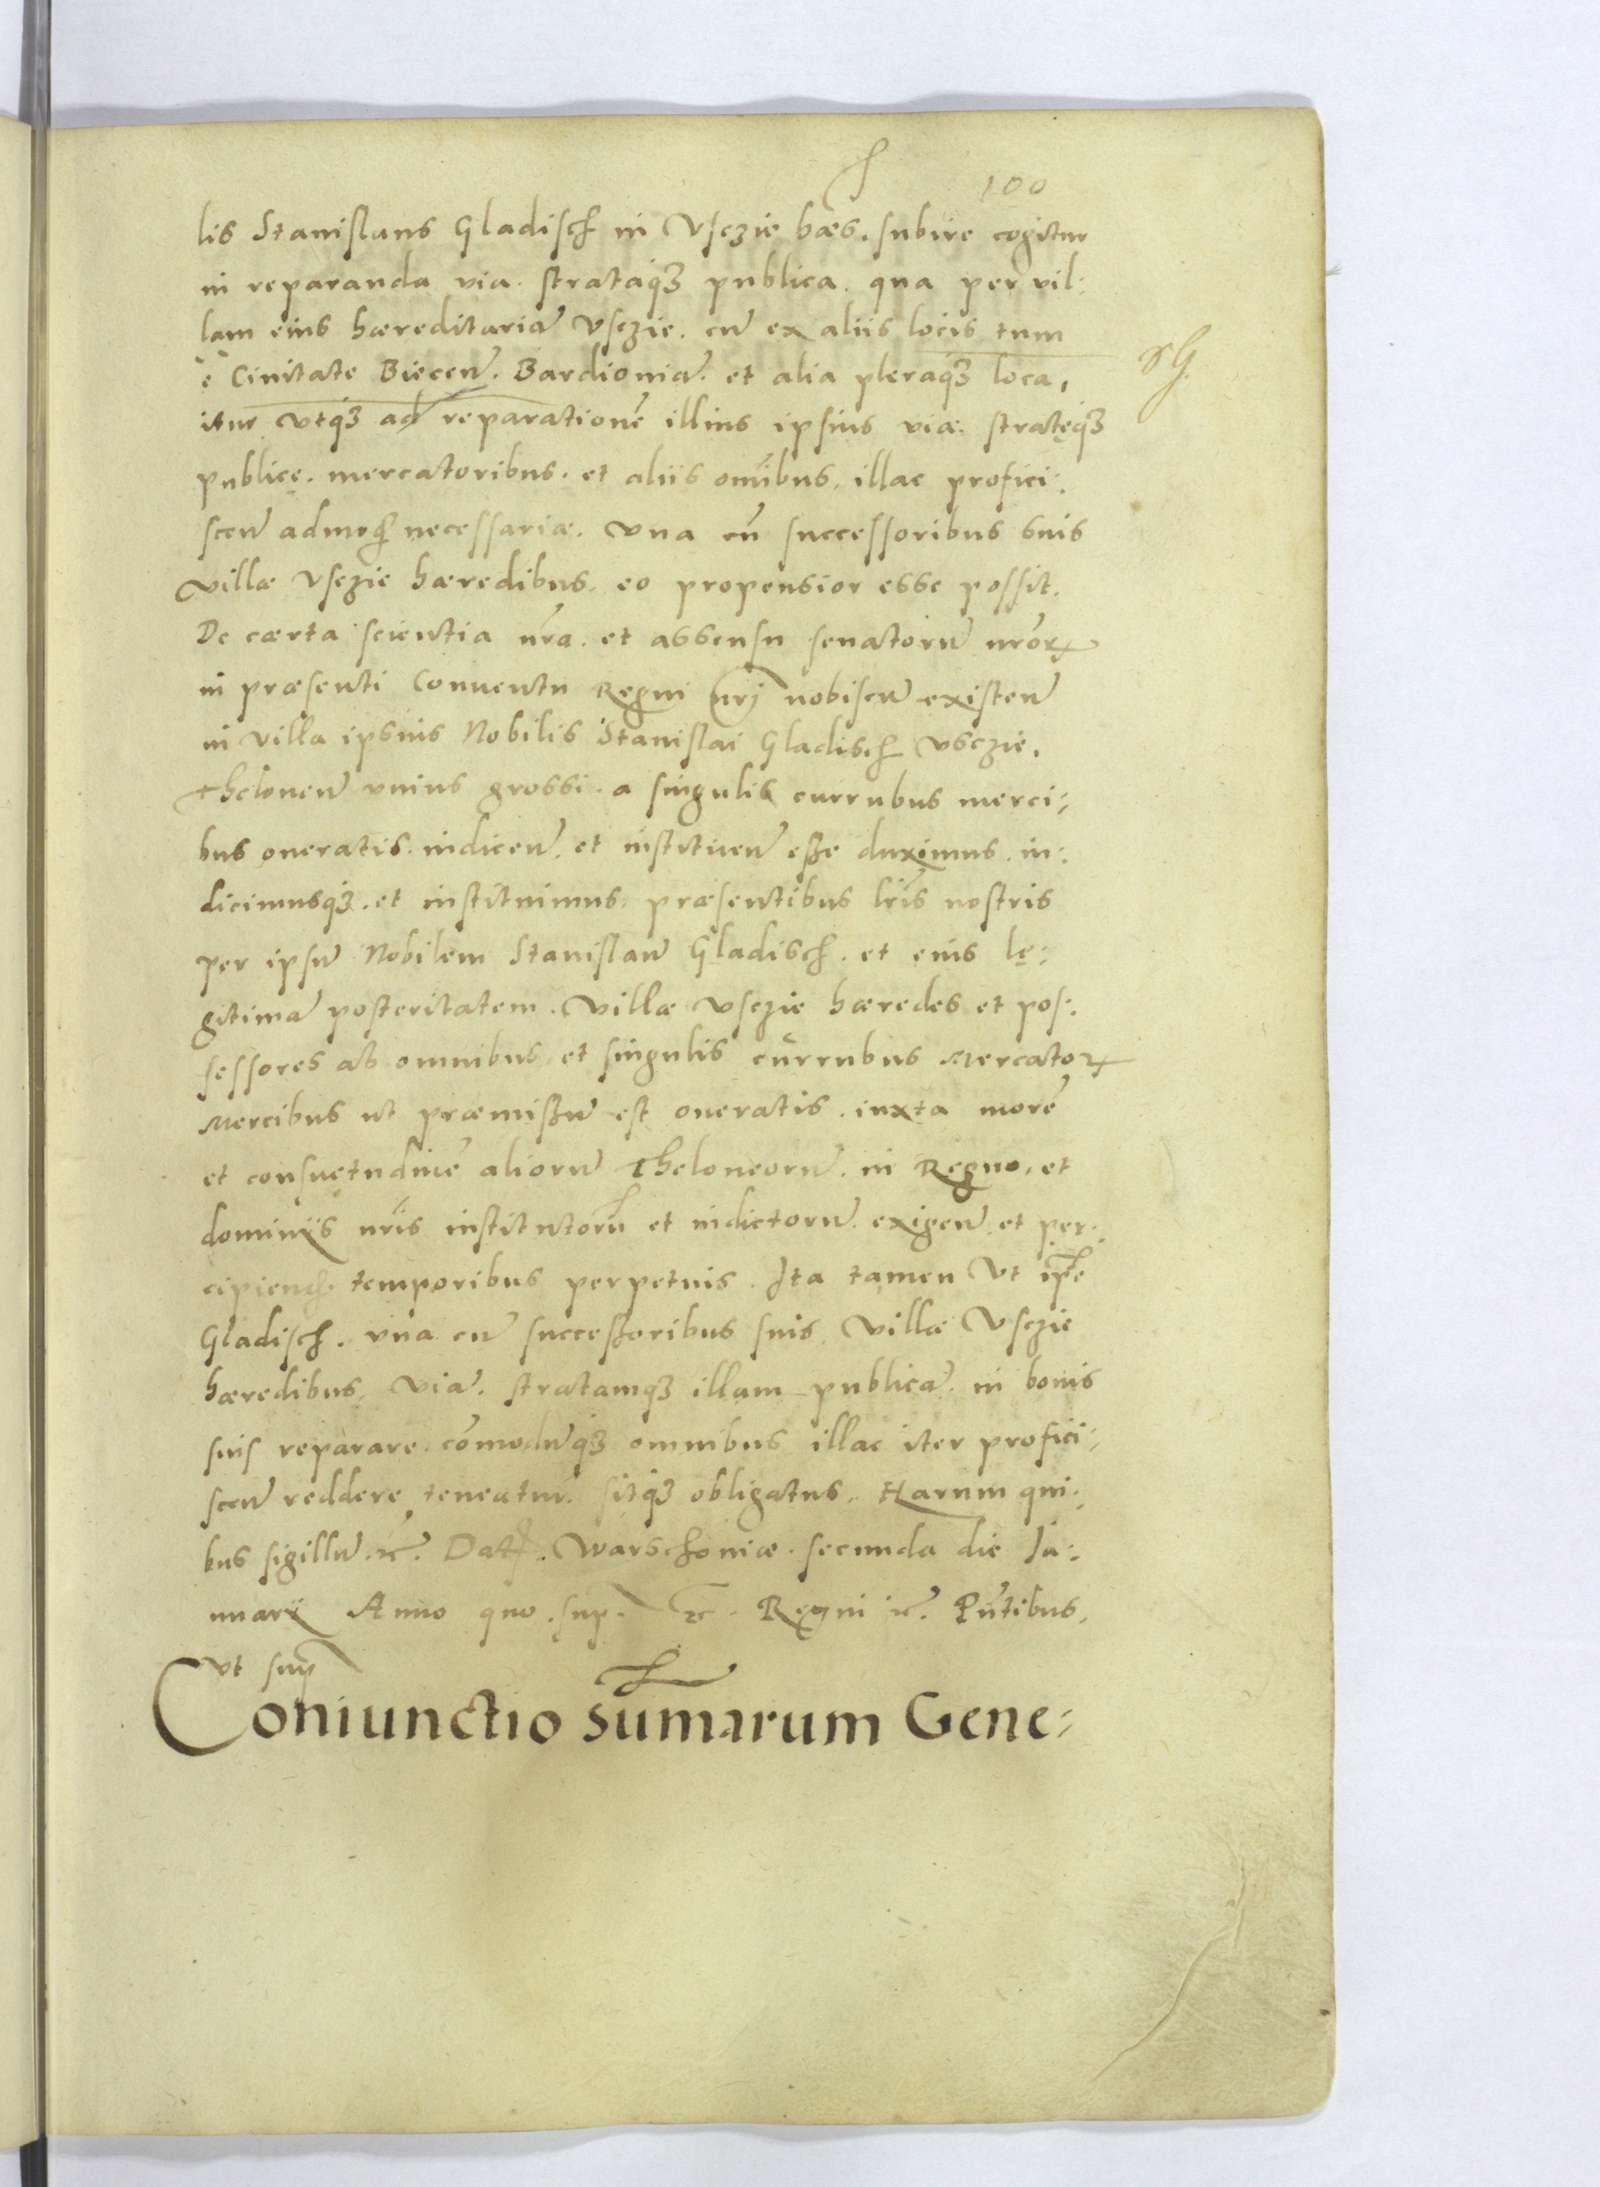 100
lis Stanislaus Gladisch in Vsczie hæs. subire cogitur
in reparanda via. strataq₃ publica. qua per vil:
lam eius hæreditariā Vsczie. cū ex aliis locis tum
è Ciuitate Biecen̄. Bardiouiā. et alia pleraq₃ loca,
itur vtq₃ ad reparationē illius ipsius viæ. stratęq₃
publicę. mercatoribus. et aliis om̄ibus. illac profici:
scen̄ necessariæ. vna cū successoribus suis
villæ Vsczie hæredibus. eo propensior esse possit.
De cærta scientia nr̄a. et assensu senatorū nr̄oꝝ
in præsenti Conuentu Regni nr̄j nobiscū existen̄
in villa ipsius Nobilis Stanislai Gladisch Vsczie.
theloneū vnius grossi. a singulis currubus merci:
bus oneratis. indicen̄. et instituen̄ esse duximus. in:
dicimusq₃. et instituimus. præsentibus lr̄is nostris
per ipsū Nobilem Stanislaū Gladisch. et eius lę:
gitimā posteritatem. Villæ Vsczie hæredes et pos:
sessores ab omnibus et singulis currubus Mercatoꝝ
Mercibus ut præmissū est oneratis. iuxta morē
et consuetudinē aliorū theloneorū. in Regno. et
dominijs nr̄is institutorū et indictorū. exigen̄ et per:
cipien̄. temporibus perpetuis. Ita tamen Vt ip̄e
Gladisch. vna cū successoribus suis Villæ Vsczie
hæredibus. viā. stratamq₃ illam publicā. in bonis
suis reparare. cōmodūq₃ omnibus illac iter profici:
scen̄ reddere teneatur. sitq₃ obligatus. Harum qui:
bus sigillū. ꝛc̄. Datȝ. Warschouiæ. secunda die Ja:
nuarij Anno quo. sup. ꝛc. Regni ꝛc̄. Pn̄tibus.
vt sup
Coniunctio Sum̄arum Gene: